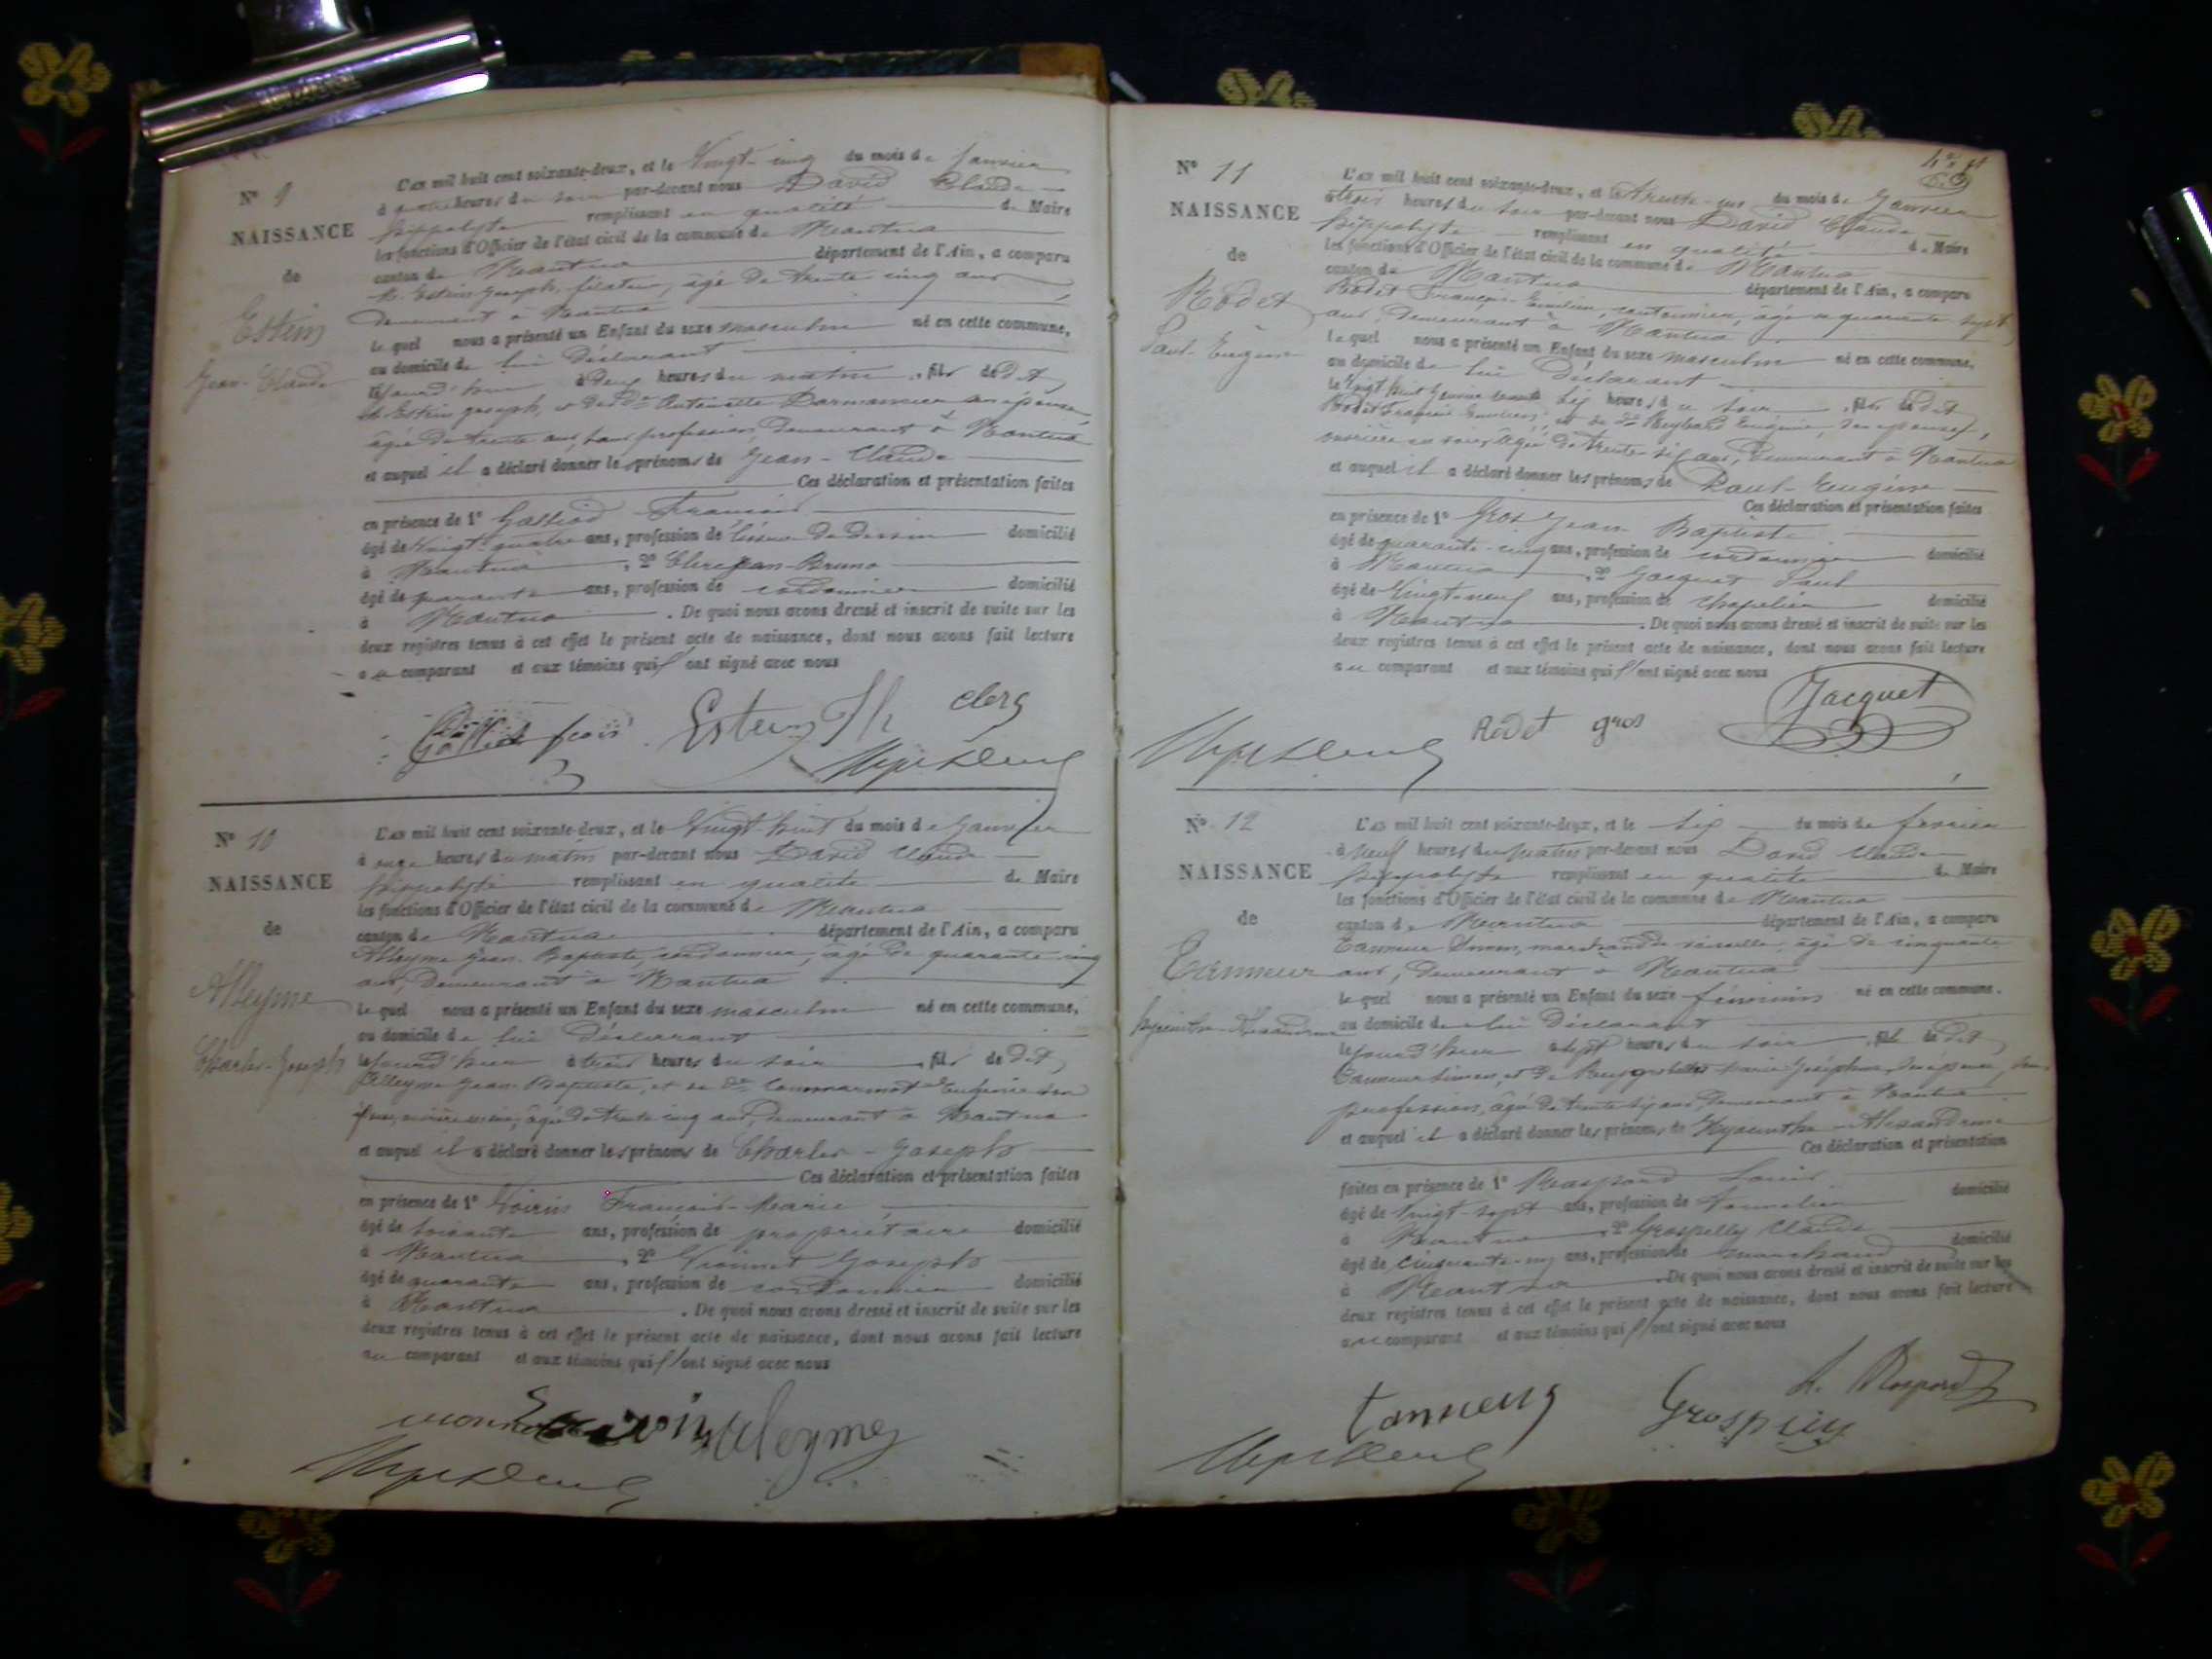 N° 9
NAISSANCE
de
Estein
Jean-Claude
L'an mil huit cent soixante-deux, et le Vingt-cinq du mois de Janvier
à quatre heures du soir par-devant nous David Claude
hippolyte remplissant en qualité de Maire
les fonctions d'Officier de l'état civil de la commune de Nantua
canton de Nantua département de l'Ain, a comparu
Estein Joseph, âgé de trente cinq ans
demeurant à Nantua
lequel nous a présenté un Enfant du sexe masculin né en cette commune,
au domicile de lui Déclarant
à deux heures du matin, fils dudit
Estein Joseph, et de Antoinette son épouse
âgée de trente ans, sans profession, demeurant à Nantua
et auquel il a déclaré donner les prénoms de Jean-Claude
Ces déclaration et présentation faites
en présence de 1° François
âgé de Vingt-quatre ans, profession de liseur de dessin domicilié
à Nantua, 2° Clerc Jean-Bruno
âgé de quarante ans, profession de cordonnier domicilié
à Nantua. De quoi nous avons dressé et inscrit de suite sur les
deux registres tenus à cet effet le présent acte de naissance, dont nous avons fait lecture
au comparant et aux témoins qui ont signé avec nous
Estein Clerc
N° 10
NAISSANCE
de
Alleyme
Charles-Joseph
L'an mil huit cent soixante-deux, et le Vingt-huit du mois de Janvier
à onze heures du matin par-devant nous David Claude
hippolyte remplissant en qualité de Maire
les fonctions d'Officier de l'état civil de la commune de Nantua
canton de Nantua département de l'Ain, a comparu
Alleyme Jean-Baptiste, cordonnier, âgé de quarante cinq
ans, demeurant à Nantua
lequel nous a présenté un Enfant du sexe masculin né en cette commune,
au domicile de lui Déclarant
à trois heures du soir, fils dudit
Alleyme Jean-Baptiste, et de Eugénie son
âgée de trente cinq ans, demeurant à Nantua
et auquel il a déclaré donner les prénoms de Charles-Joseph
Ces déclaration et présentation faites
en présence de 1° Voirin François-Marie
âgé de soixante ans, profession de propriétaire domicilié
à Nantua, 2° Vionnet Joseph
âgé de quarante ans, profession de cordonnier domicilié
à Nantua. De quoi nous avons dressé et inscrit de suite sur les
deux registres tenus à cet effet le présent acte de naissance, dont nous avons fait lecture
au comparant et aux témoins qui ont signé avec nous
alleyme
N° 11
NAISSANCE
de
Rodet
Paul-Eugène
L'an mil huit cent soixante-deux, et le trente-un du mois de Janvier
à trois heures du soir par-devant nous David Claude
hippolyte remplissant en qualité de Maire
les fonctions d'Officier de l'état civil de la commune de Nantua
canton de Nantua département de l'Ain, a comparu
Rodet François cantonnier, âgé de quarante sept
ans, demeurant à Nantua
lequel nous a présenté un Enfant du sexe masculin né en cette commune,
au domicile de lui Déclarant
le vingt huit Janvier six heures du soir, fils dudit
Rodet François et de Eugénie, son épouse,
ouvrière en soie, âgée de trente six ans, demeurant à Nantua
et auquel il a déclaré donner les prénoms de Paul-Eugène
Ces déclaration et présentation faites
en présence de 1° Gros Jean Baptiste
âgé de quarante-cinq ans, profession de cordonnier domicilié
à Nantua, 2° Jacquet Paul
âgé de Vingt-neuf ans, profession de chapelier domicilié
à Nantua. De quoi nous avons dressé et inscrit de suite sur les
deux registres tenus à cet effet le présent acte de naissance, dont nous avons fait lecture
au comparant et aux témoins qui ont signé avec nous
Rodet gros Jacquet
N° 12
NAISSANCE
de
Tanneur
L'an mil huit cent soixante-deux, et le six du mois de février
à neuf heures du matin par-devant nous David Claude
hippolyte remplissant en qualité de Maire
les fonctions d'Officier de l'état civil de la commune de Nantua
canton de Nantua département de l'Ain, a comparu
Tanneur Simon, marchand de vaisselle, âgé de cinquante
ans, demeurant à Nantua
lequel nous a présenté un Enfant du sexe féminin né en cette commune,
au domicile de lui Déclarant
à sept heures du soir, fille dudit
Tanneur Simon, et de Marie Joséphine, son épouse, sans
profession, âgée de trente six ans, demeurant à Nantua
et auquel il a déclaré donner les prénoms de Hyacinthe-Alexandrine
Ces déclaration et présentation
faites en présence de 1° Louis
âgé de Vingt-sept ans, profession de domicilié
à Nantua, 2° Claude
âgé de cinquante ans, profession de marchand domicilié
à Nantua. De quoi nous avons dressé et inscrit de suite sur les
deux registres tenus à cet effet le présent acte de naissance, dont nous avons fait lecture
au comparant et aux témoins qui ont signé avec nous